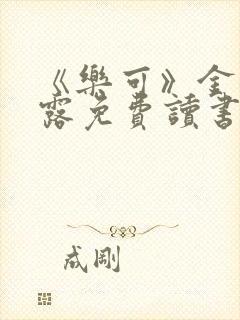 《樂可》金
露免費讀書
成剛